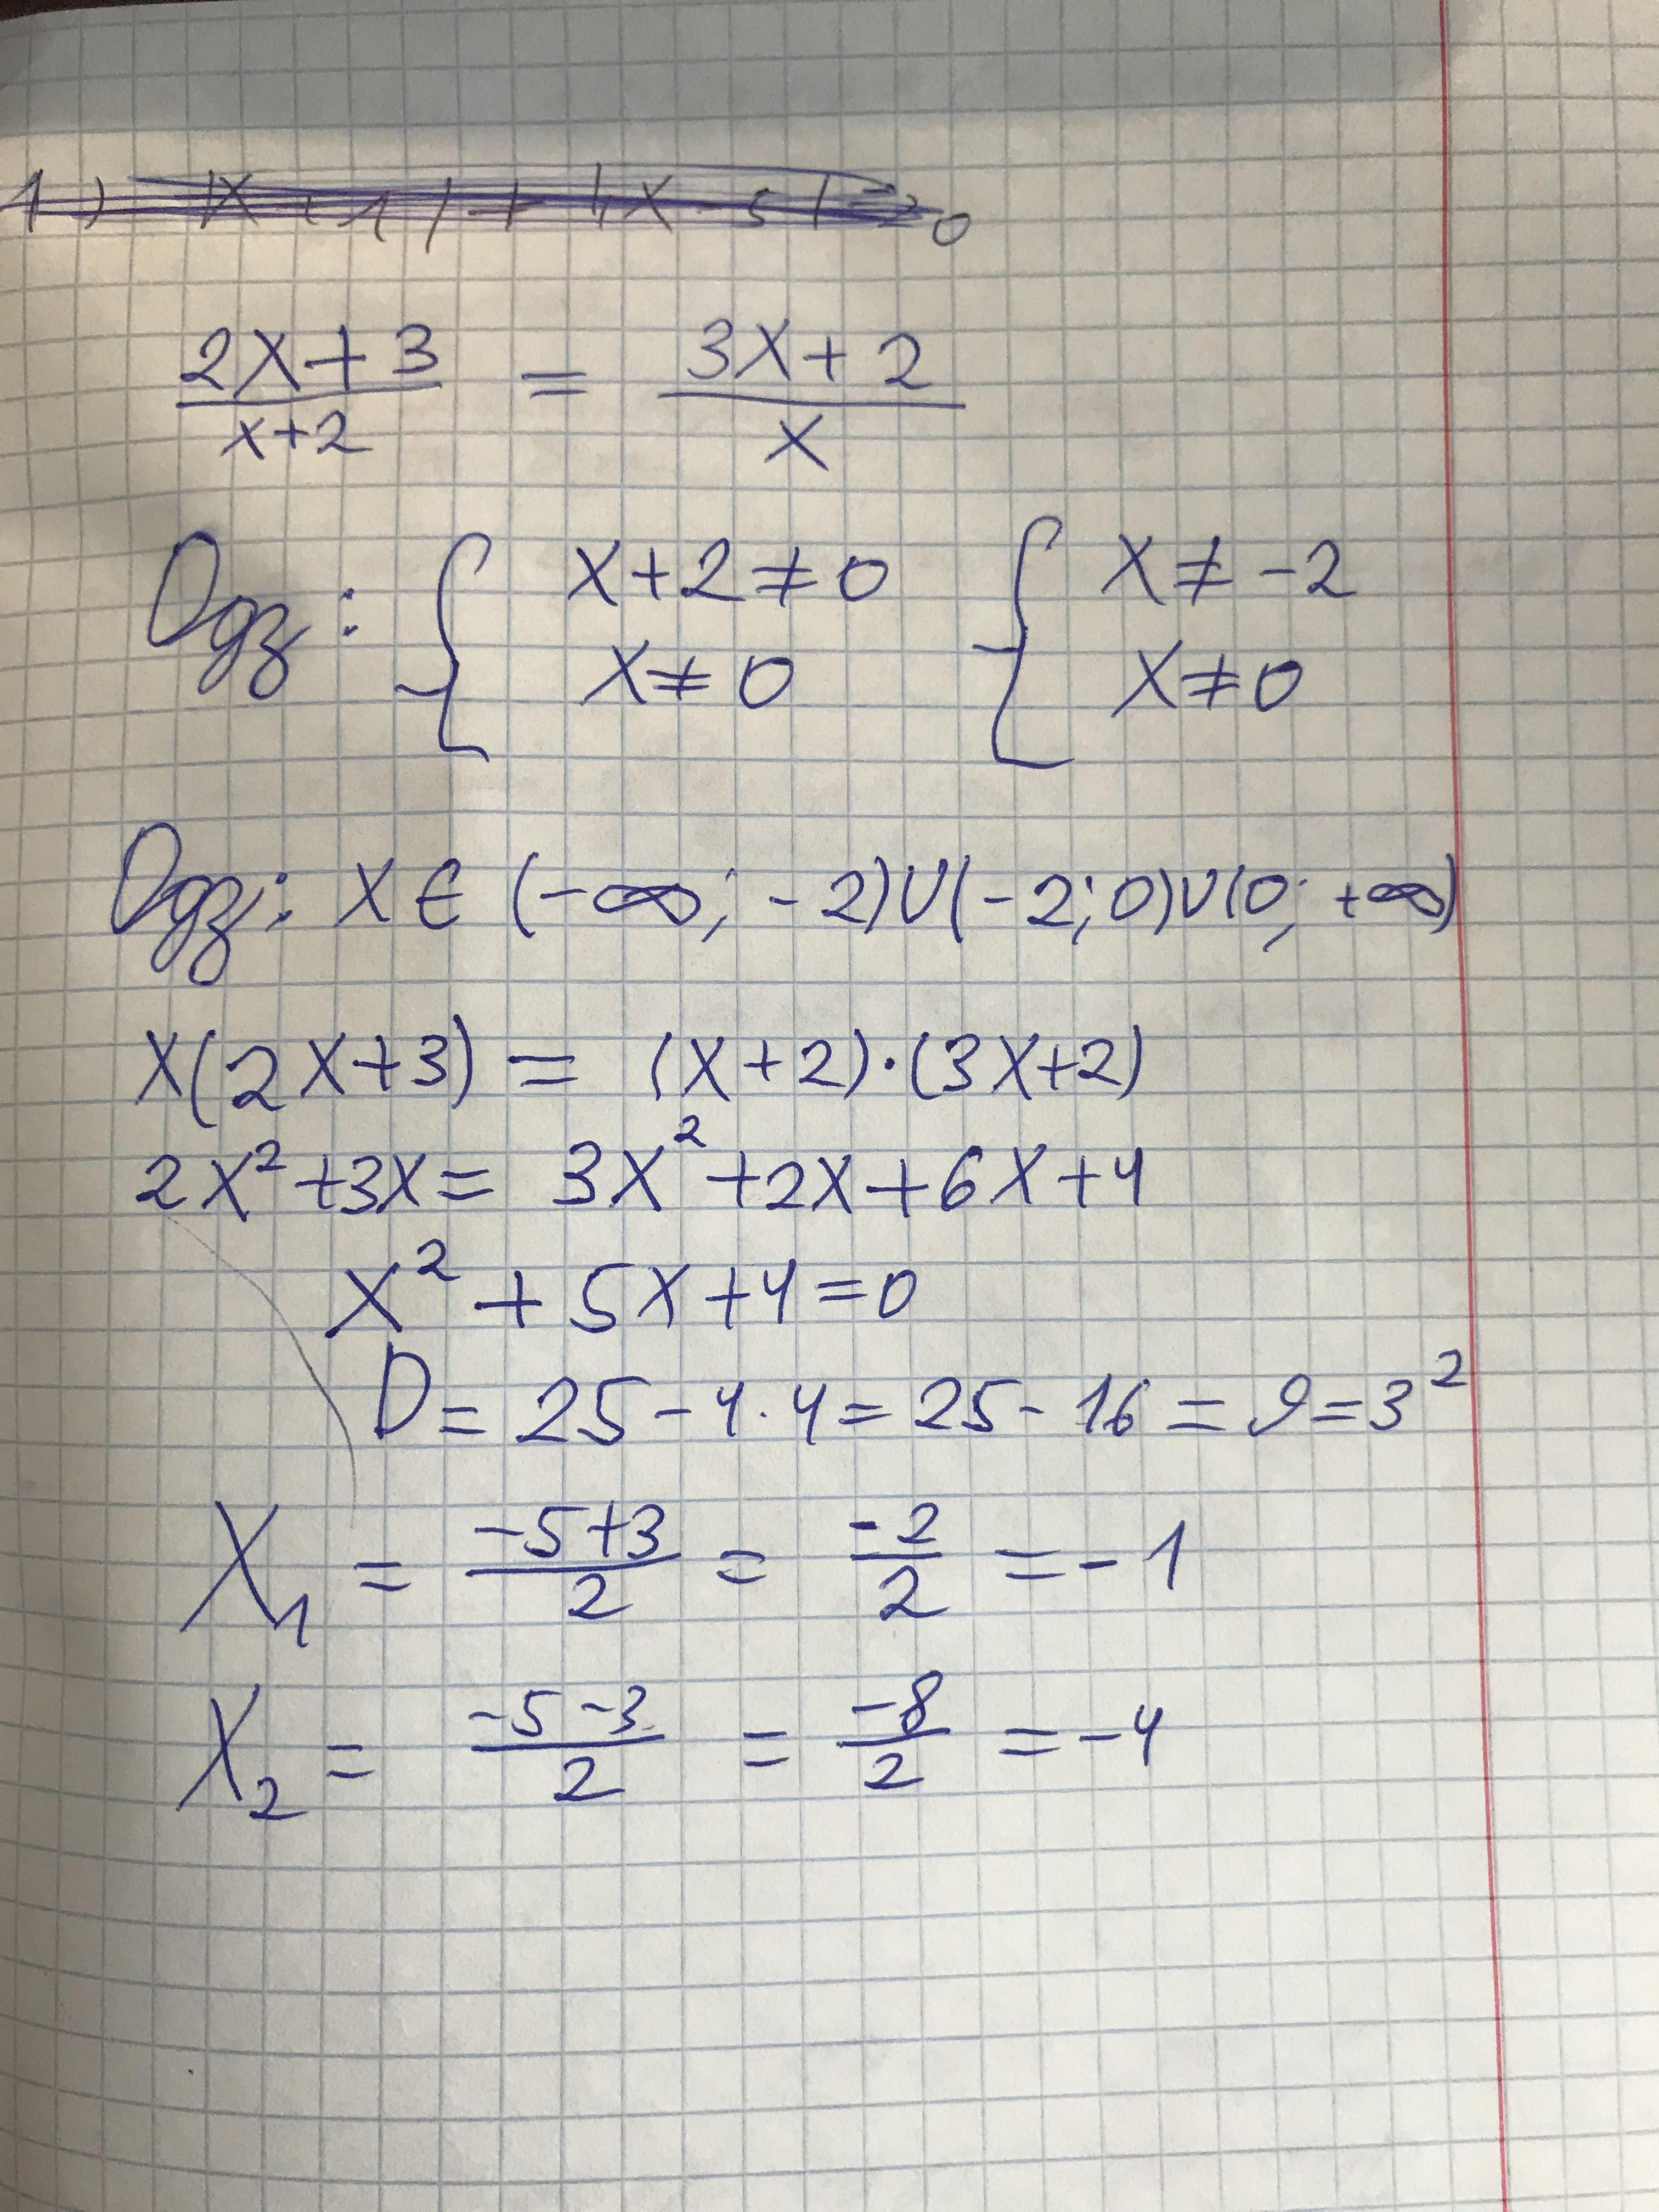 1) |x+1|+|x-5|=20
2x+3/x+2 = 3x+2/x
Одз: { x+2≠0 { x≠-2
x≠0 x≠0
Одз: x∈(-∞; -2)∪(-2;0)∪(0; +∞)
x(2x+3) = (x+2)·(3x+2)
2x²+3x = 3x²+2x+6x+4
x²+5x+4=0
D=25-4·4=25-16=9=3²
x₁ = -5+3/2 = -2/2 = -1
x₂ = -5-3/2 = -8/2 = -4